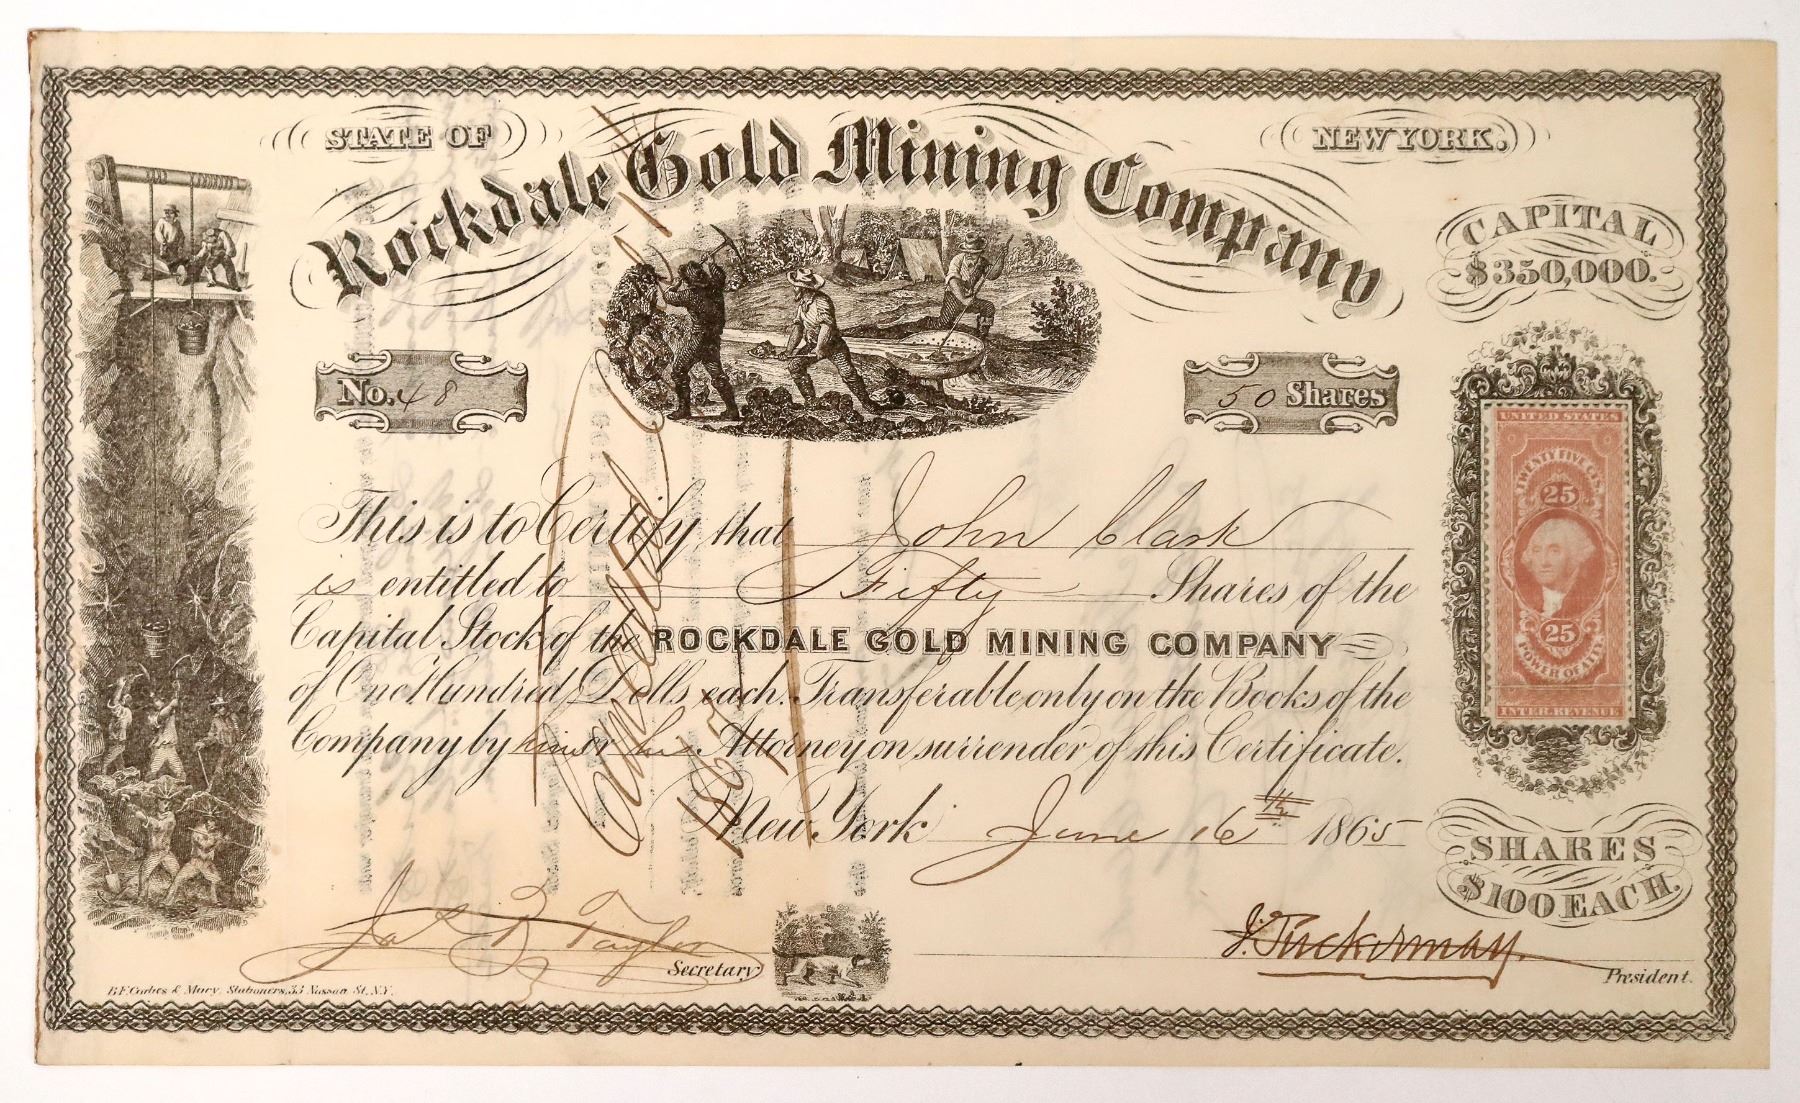 STATE OF
NEW YORK.
Rockdale Gold Mining Company
CAPITAL
$350,000.
No. 48
50 Shares
UNITED STATES
TWENTY FIVE CTS.
25
25
POWER OF ATT'Y
INTER. REVENUE
This is to Certify that John Clark
is entitled to Fifty Shares of the
Capital Stock of the ROCKDALE GOLD MINING COMPANY
of One Hundred Dolls each. Transferable only on the Books of the
Company by him or his Attorney on surrender of this Certificate.
New York June 16th 1865
Cancelled
SHARES
$100 EACH.
Jas R Taylor
Secretary
J. Tuckerman
President.
Stationers, 33 Nassau St. N.Y.